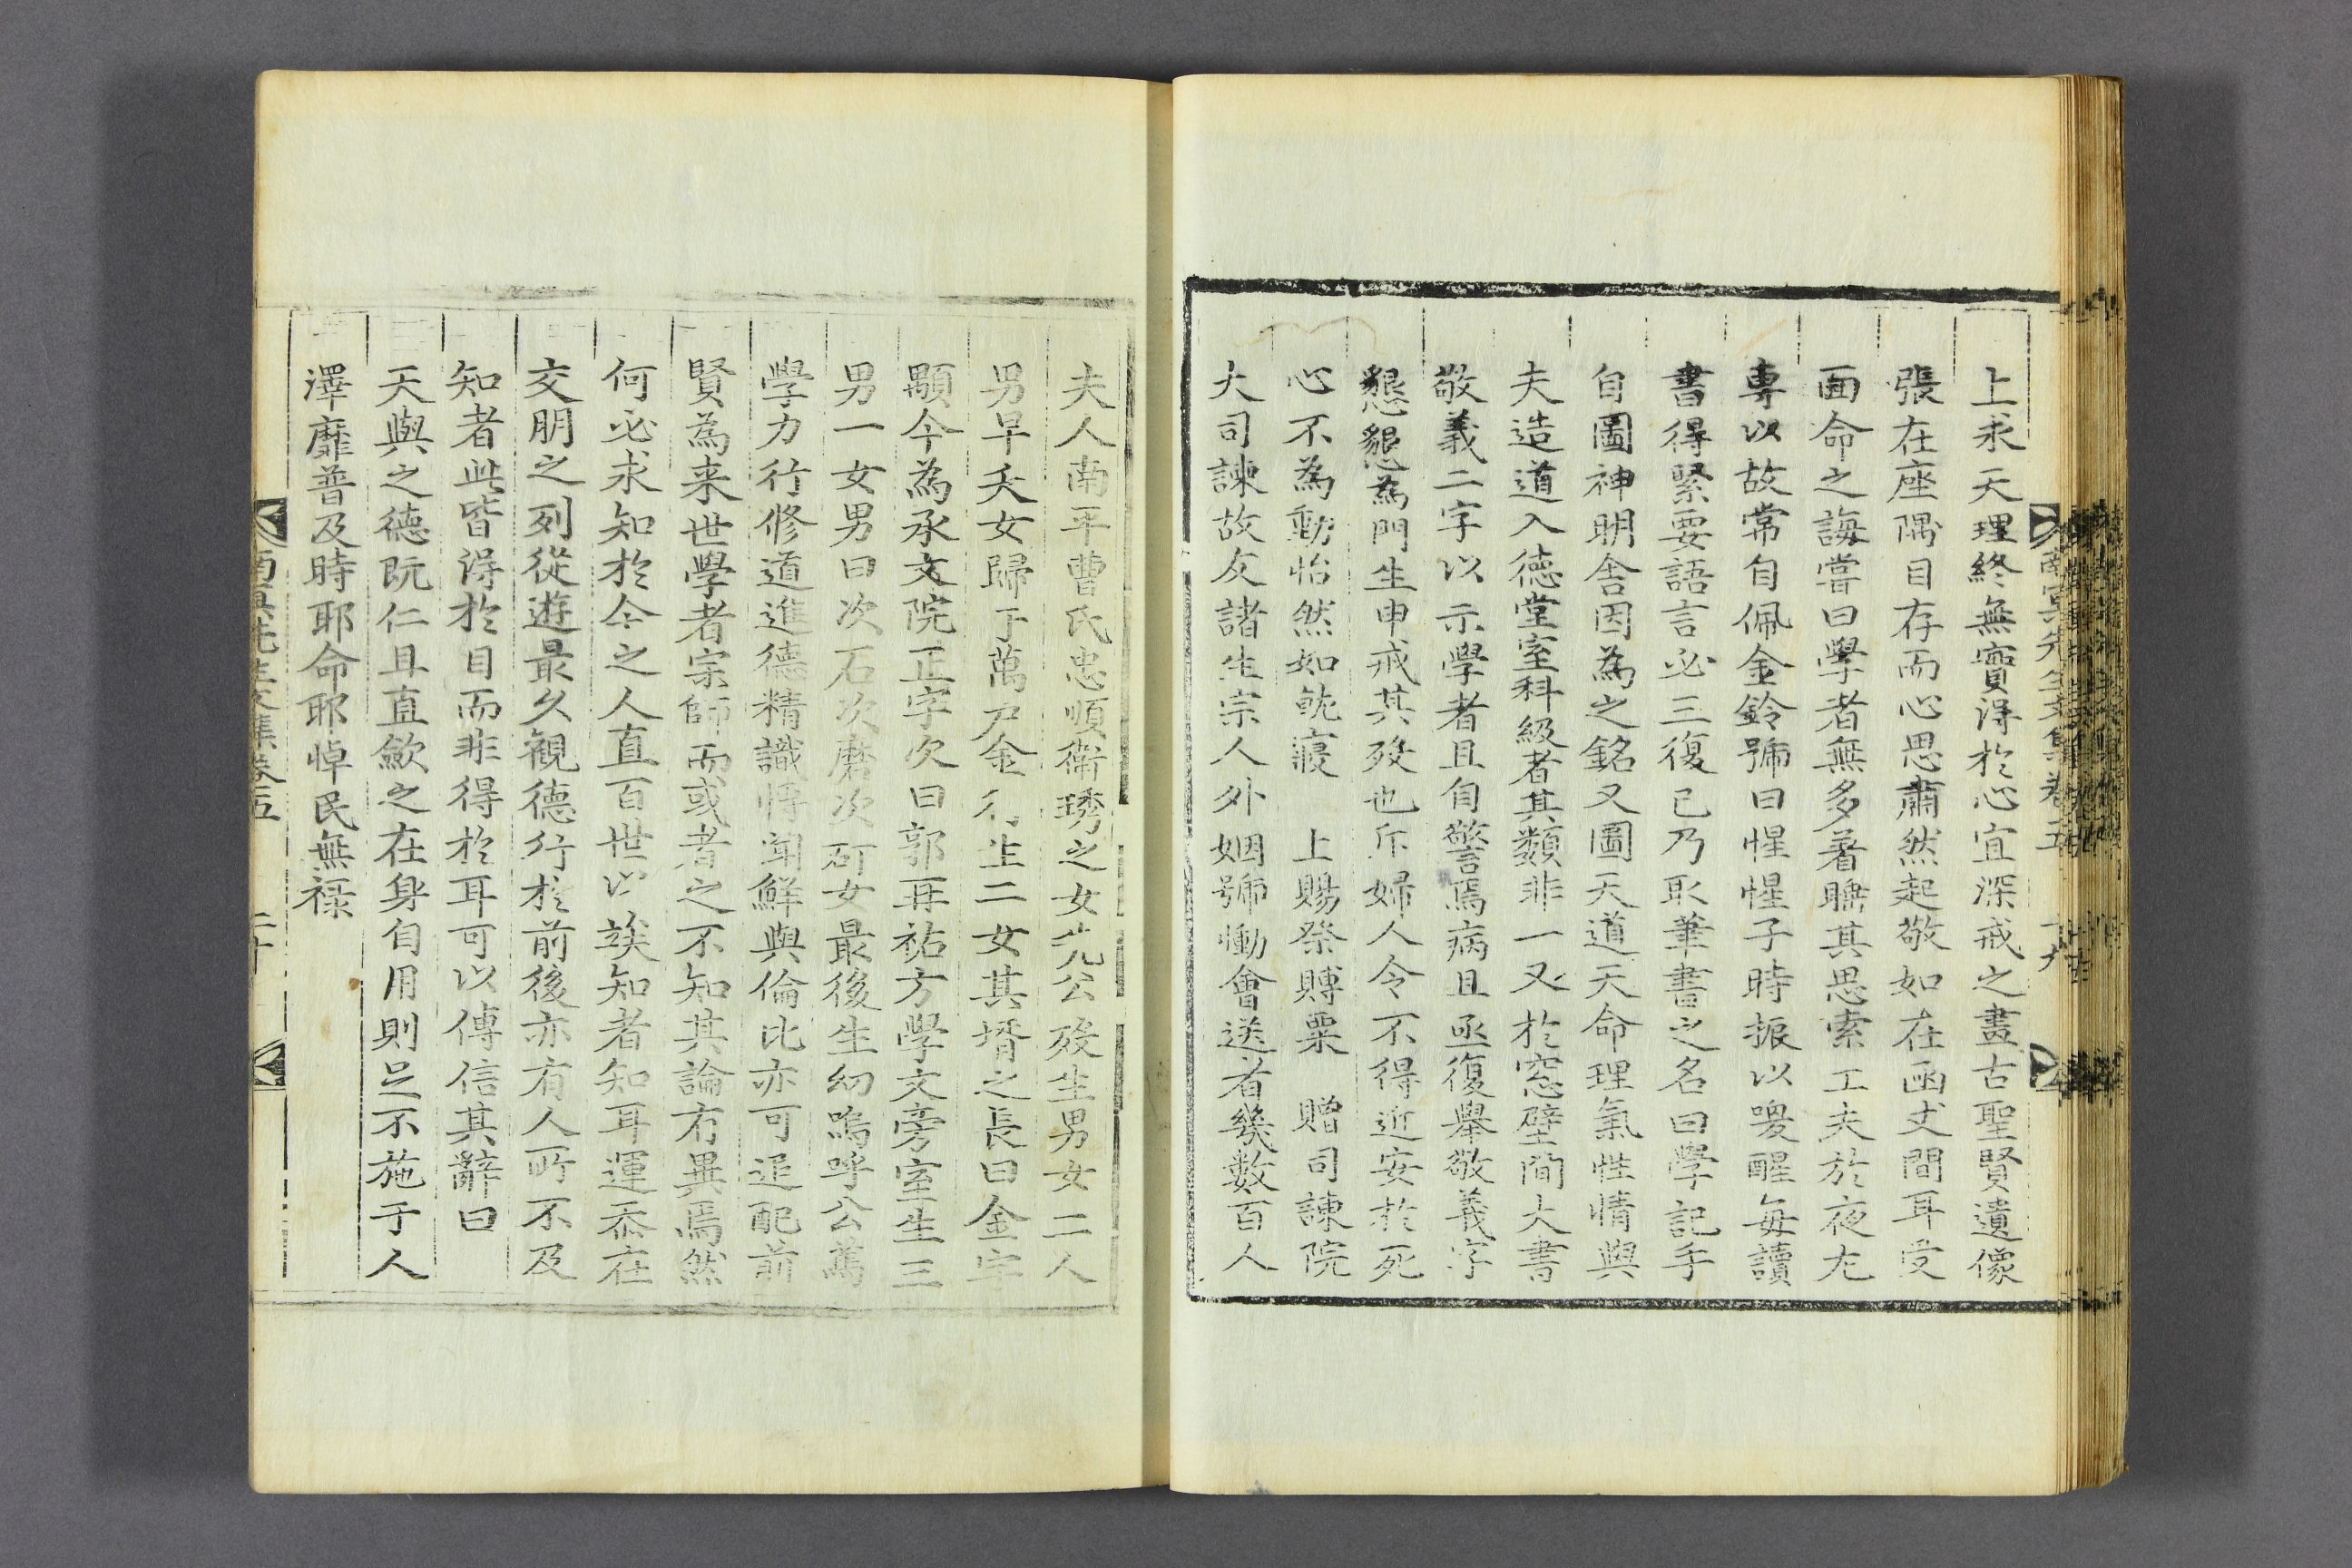 南冥先生文集卷五 十九
上求天理終無實得於心宜深戒之畫古聖賢遺像
張在座隅目存而心思肅然起敬如在函丈間耳受
面命之誨嘗曰學者無多著睡其思索工夫於夜尤
專以故常自佩金鈴號曰惺惺子時振以喚醒每讀
書得緊要語言必三復已乃取筆書之名曰學記手
自圖神明舍因為之銘又圖天道天命理氣性情與
夫造道入德堂室科級者其類非一又於窓壁間大書
敬義二字以示學者且自警焉病且亟復舉敬義字
懇懇為門生申戒其歿也斥婦人令不得近安於死
心不為動怡然如就寢　上賜祭賻粟　贈司諫院
大司諫故友諸生宗人外姻號慟會送者幾數百人
夫人南平曺氏忠順衛琇之女先公歿生男女二人
男早夭女歸于萬戶金行生二女其壻之長曰金宇
顒今為承文院正字次曰郭再祐方學文旁室生三
男一女男曰次石次磨次矴女最後生幼嗚呼公篤
學力行修道進德精識博聞鮮與倫比亦可追配前
賢為来世學者宗師而或者之不知其論有異焉然
何必求知於今之人直百世以竢知者知耳運忝在
交朋之列從遊最久觀德行於前後亦有人所不及
知者此皆得於目而非得於耳可以傳信其辭曰
天與之德既仁且直斂之在身自用則足不施于人
澤靡普及時耶命耶悼民無祿
南冥先生文集卷五 二十